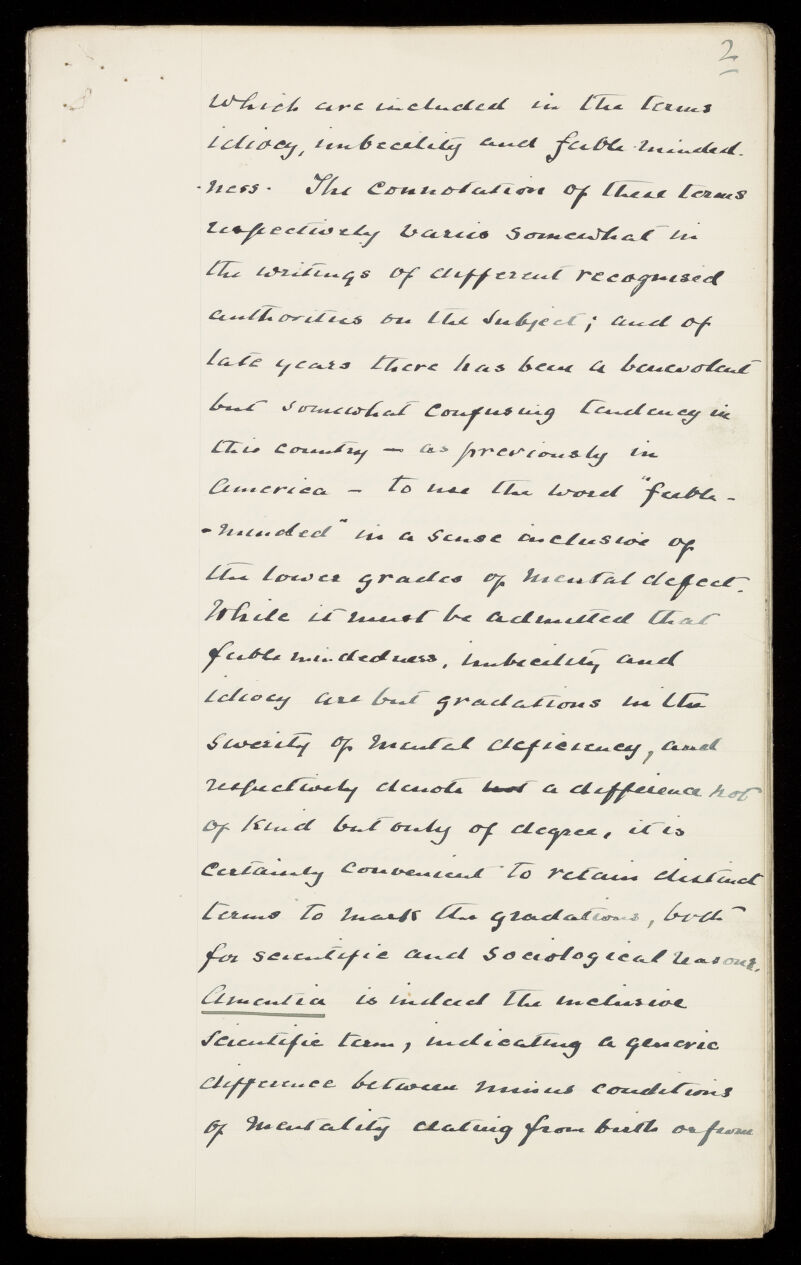 2
which are included in the terms
idiocy, imbecility and feeble-minded-
-ness. The connotation of these terms
respectively varies somewhat in
the writings of different recognised
authorities on the subject; and of
late years there has been a benevolent
but somewhat confusing tendency in
this country - as previously in
America - to use the word "feeble-
-minded" in a sense inclusive of
the lower grades of mental defect.
While it must be admitted that
feeblemindedness, imbecility and
idiocy are but gradations in the
severity of mental deficiency, and
respectively denote not a difference not
of kind but only of degree, it is
certainly convenient to retain distinct
terms to mark the gradations, both
for scientific and sociological reasons.
Amentia is indeed the inclusive
scientific term, indicating a generic
difference between minus conditions
of mentality dating from birth or from